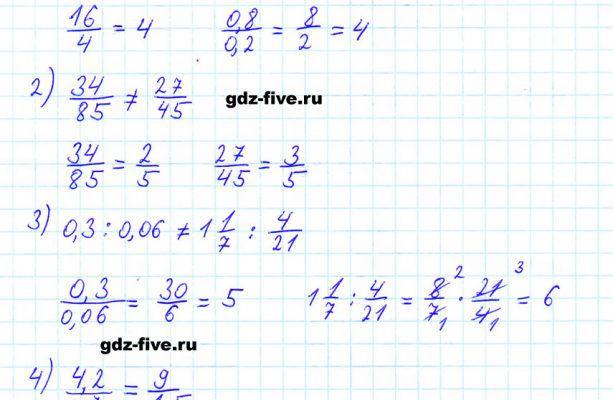 16/4 = 4    0,8/0,2 = 8/2 = 4
2) 34/85 ≠ 27/45
gdz-five.ru
34/85 = 2/5    27/45 = 3/5
3) 0,3 : 0,06 ≠ 1 1/7 : 4/21
0,3/0,06 = 30/6 = 5    1 1/7 : 4/21 = 8/7 · 21/4 = 6
2 3
1 1
gdz-five.ru
4) 4,2/ = 9/